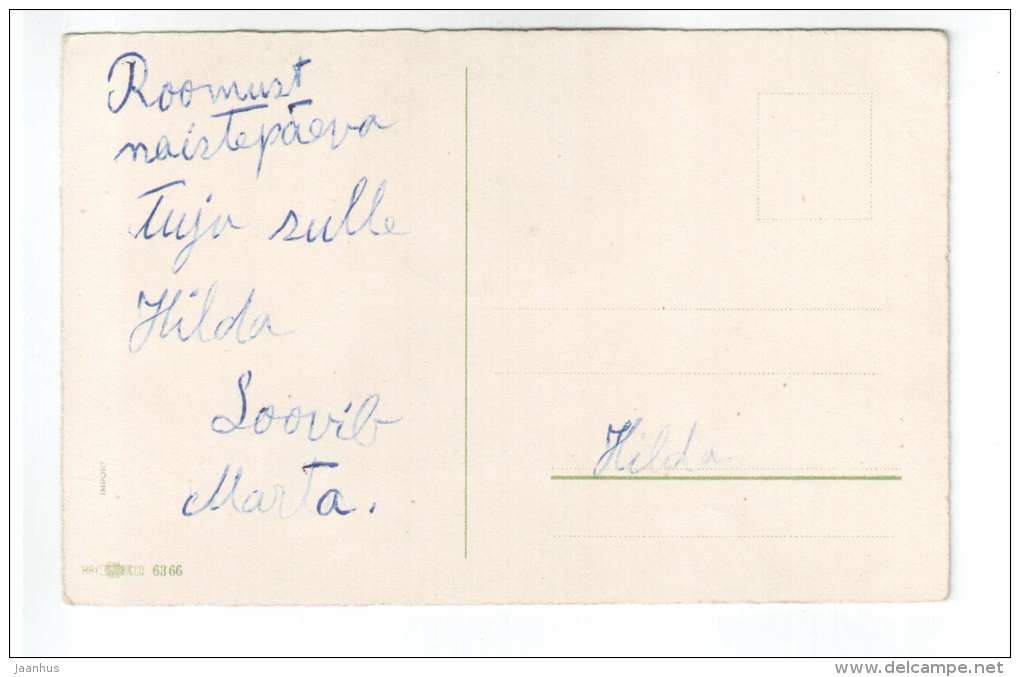 Roomust
naistepäeva
tuju sulle
Hilda
Soovib
Marta.
Hilda
IMPORT
6366
Jaanhus
www.delcampe.net